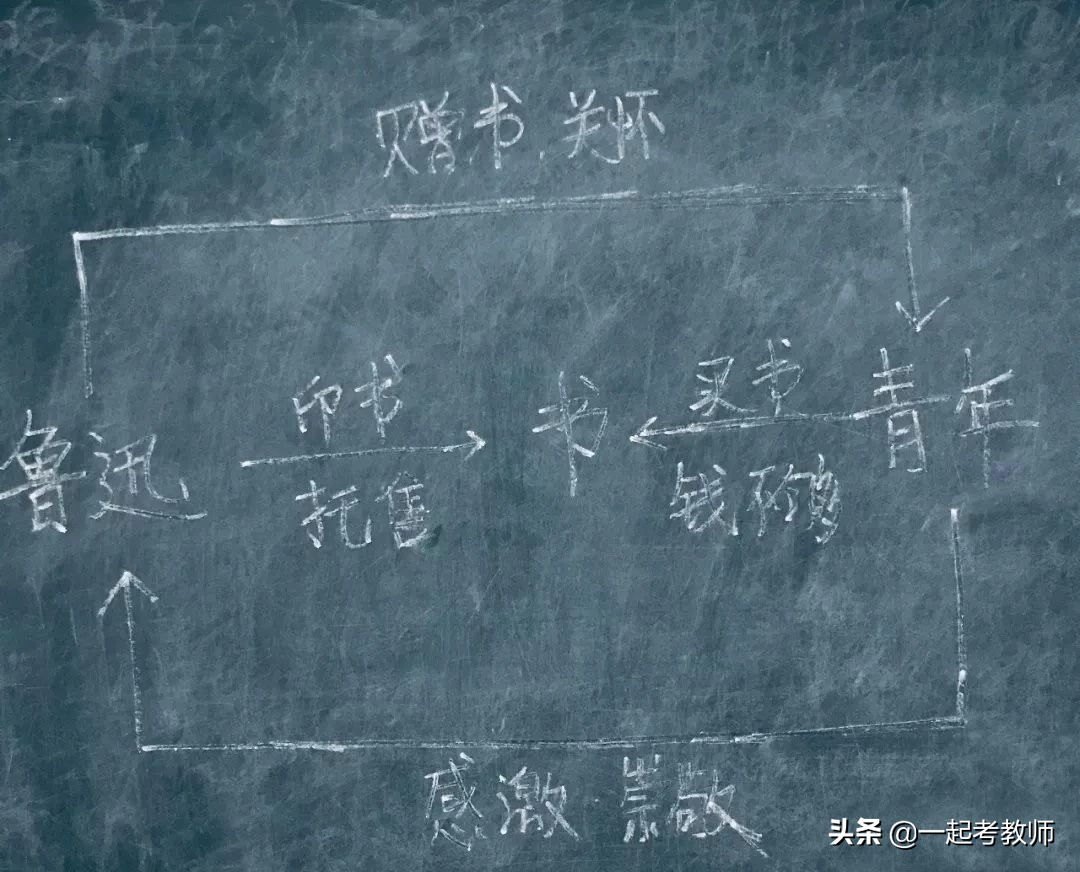 赠书 关怀
印书
买书
鲁迅
书
青年
托售
钱不够
感激 崇敬
头条 @一起考教师